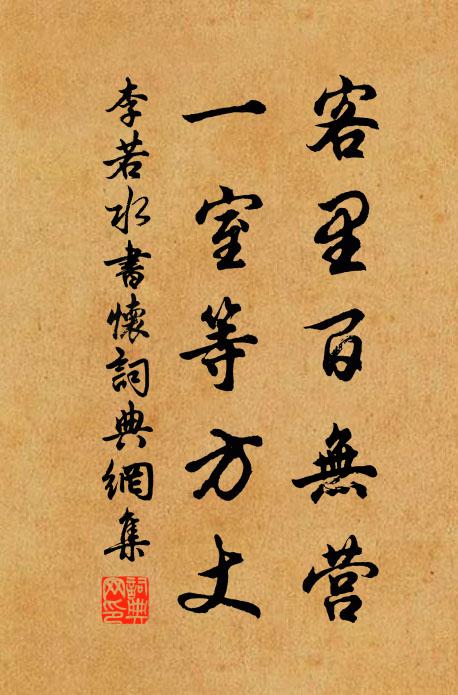 客里百無营
一室等方丈
李若水書懷詞典網集
詞典网印